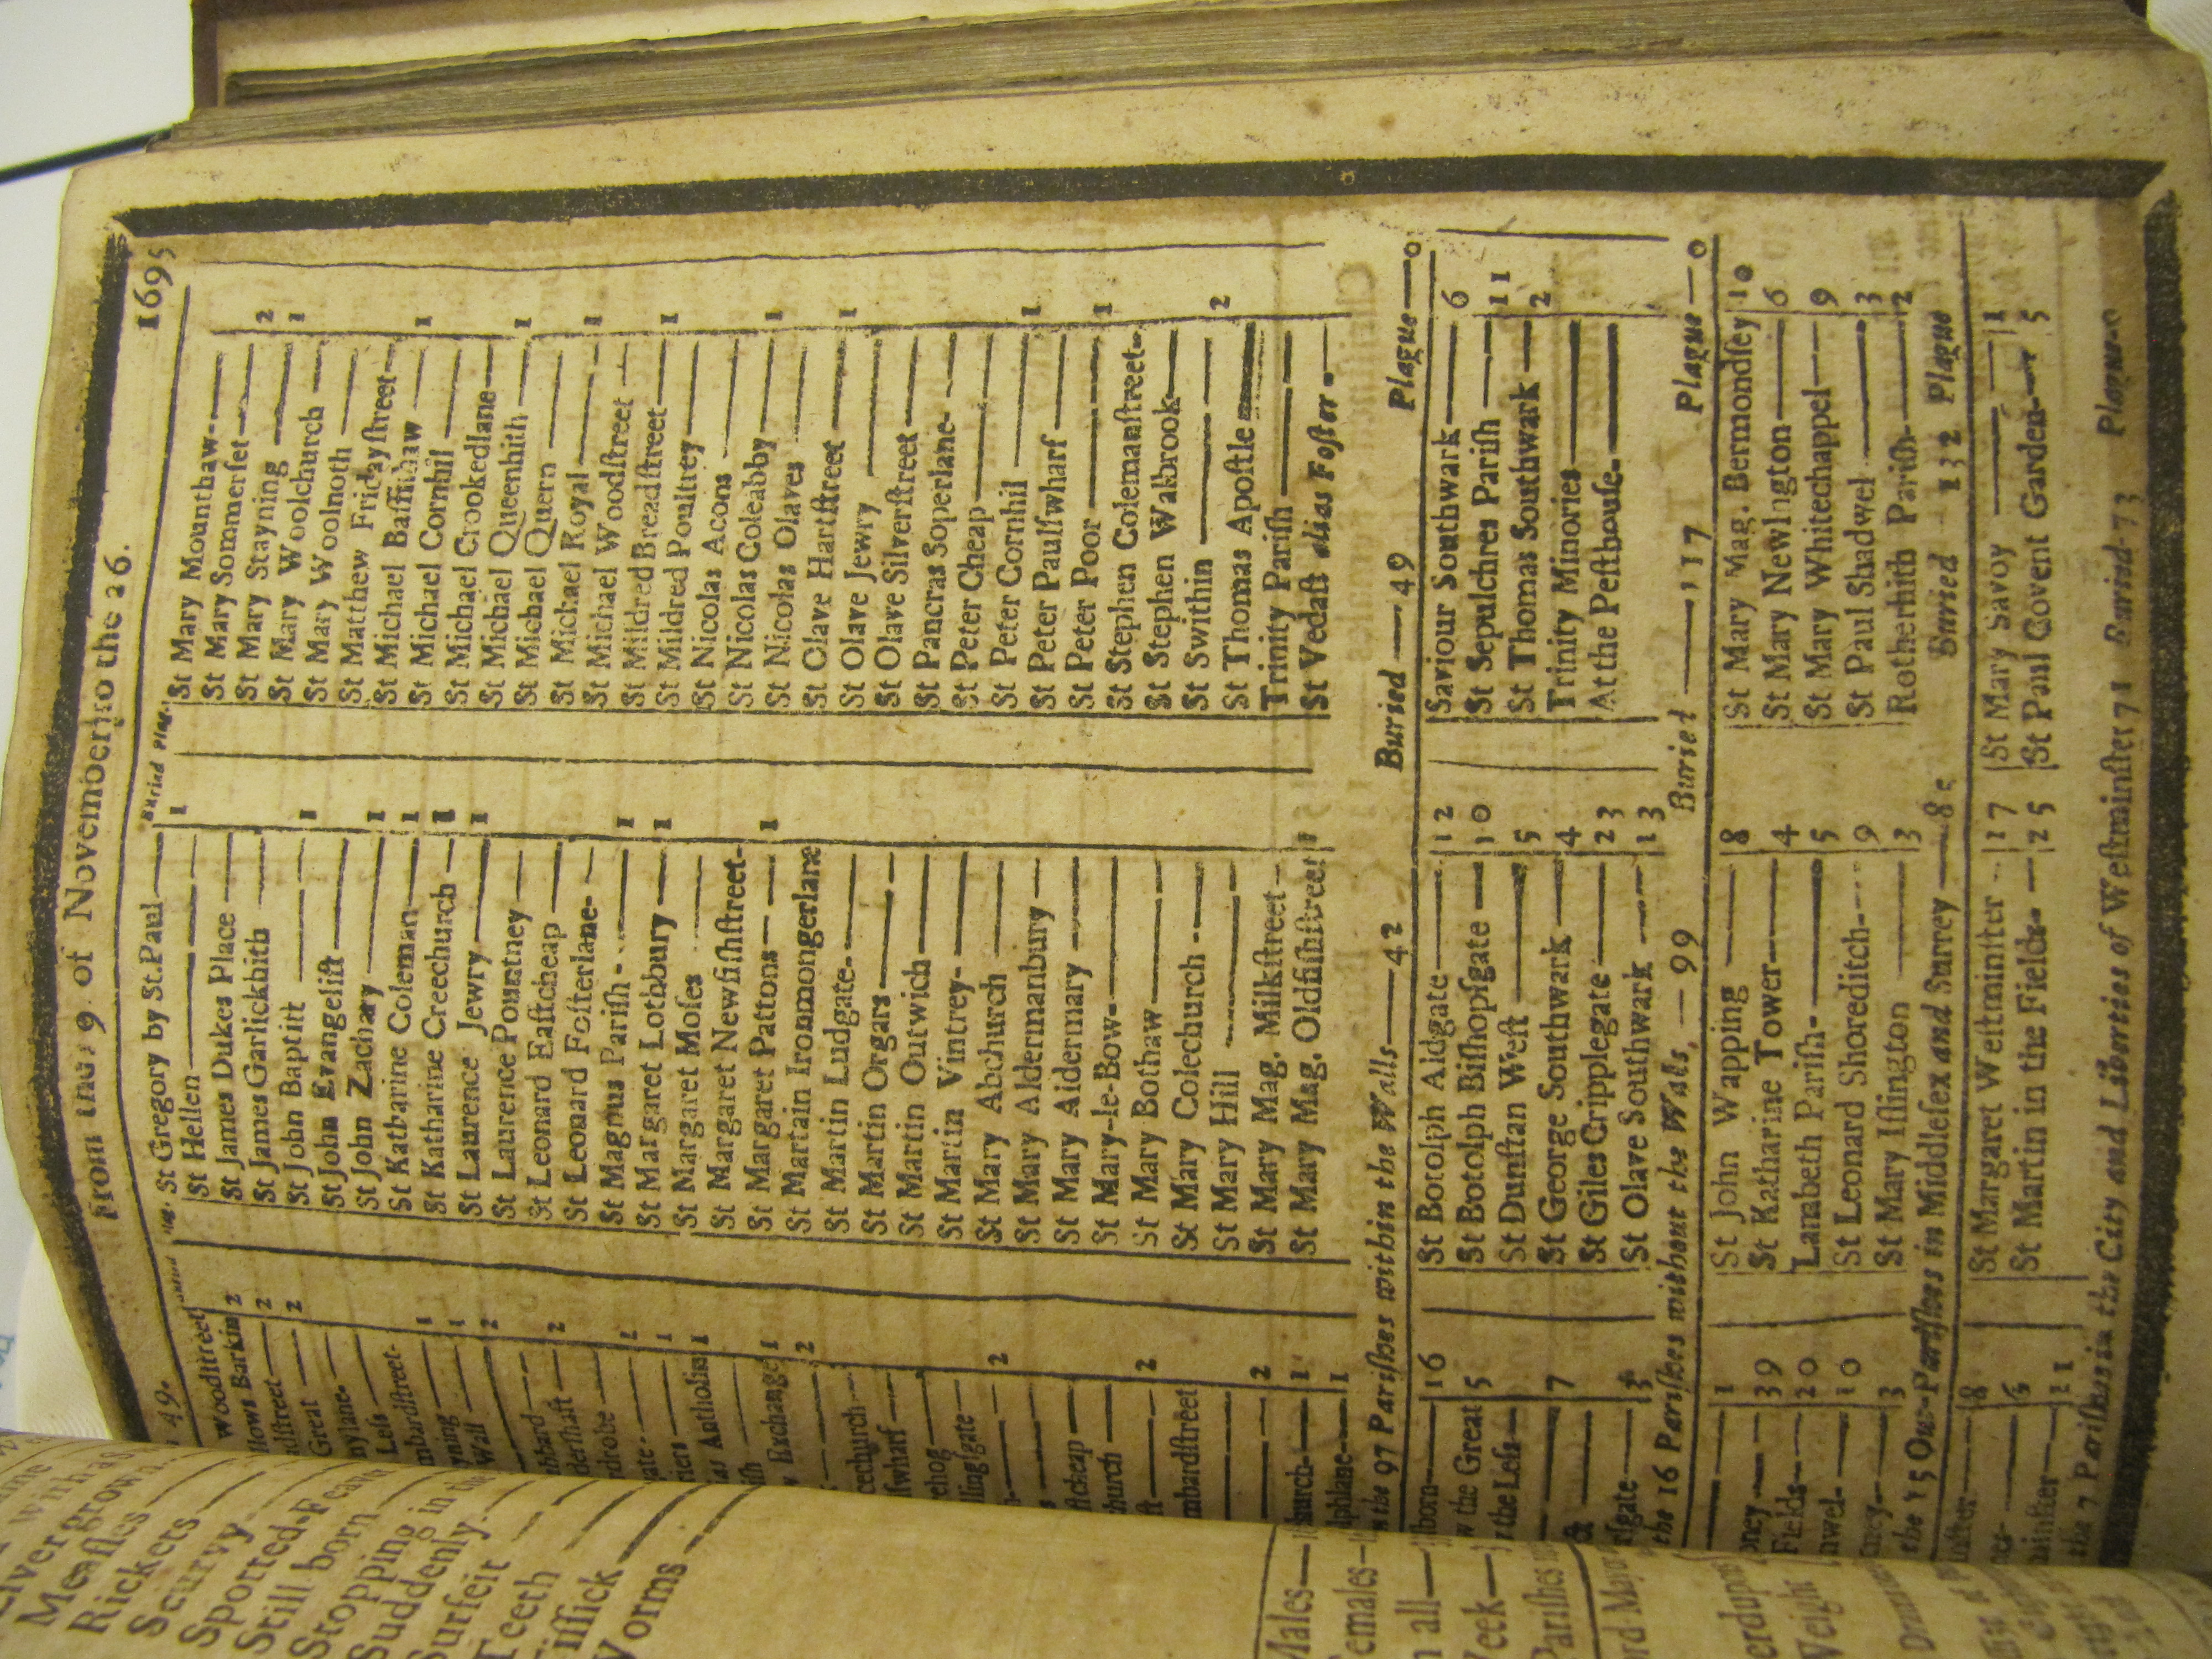 49.
From the 19 of November to the 26.
1695
Buried Plag.
Woodstreet
llows Barkin 2
dstreet 2
Great 2
nylane
Less
mbardstreet 1
yning 1
Wall 2
mbard
dershaft 2
drobe
gate
riers 1
as Antholins 1
ish
Exchange 1
2
cechurch
swharf
ehog
llingsgate
2
stcheap
church
2
mbardstreet
2
hurch 1
lphlane 1
St Gregory by St.Paul 1
St Hellen
St James Dukes Place
St James Garlickhith
St John Baptist 1
St John Evangelist
St John Zachary 1
St Katharine Coleman 1
St Katharine Creechurch 1
St Laurence Jewry 1
St Laurence Pountney
St Leonard Eastcheap
St Leonard Fosterlane
St Magnus Parish 1
St Margaret Lothbury 1
St Margaret Moses
St Margaret Newfishstreet
St Margaret Pattons 1
St Martain Ironmongerlane
St Martin Ludgate
St Martin Orgars
St Martin Outwich
St Martin Vintrey
St Mary Abchurch
St Mary Aldermanbury
St Mary Aldermary
St Mary-le-Bow
St Mary Bothaw
St Mary Colechurch
St Mary Hill
St Mary Mag. Milkstreet
St Mary Mag. Oldfishstreet
St Mary Mounthaw
St Mary Sommerset 2
St Mary Stayning 1
St Mary Woolchurch
St Mary Woolnoth
St Matthew Fridaystreet
St Michael Bassishaw 1
St Michael Cornhil
St Michael Crookedlane
St Michael Queenhith 1
St Michael Quern
St Michael Royal 1
St Michael Woodstreet
St Mildred Breadstreet 1
St Mildred Poultrey
St Nicolas Acons
St Nicolas Coleabby 1
St Nicolas Olaves
St Olave Hartstreet 1
St Olave Jewry
St Olave Silverstreet
St Pancras Soperlane
St Peter Cheap
St Peter Cornhil 1
St Peter Paulswharf
St Peter Poor 1
St Stephen Colemanstreet
St Stephen Walbrook
St Swithin 2
St Thomas Apostle
Trinity Parish
St Vedast alias Foster
the 97 Parishes within the Walls 42 Buried 49 Plague 0
lborn 16
w the Great 5
the Less
7
rsgate
St Botolph Aldgate 12
St Botolph Bishopsgate 10
St Dunstan West 5
St George Southwark 4
St Giles Cripplegate 23
St Olave Southwark 13
Saviour Southwark 6
St Sepulchres Parish 11
St Thomas Southwark 2
Trinity Minories
At the Pesthouse
the 16 Parishes without the Walls, 99 Buried 117 Plague 0
1
ney 39
Fields 20
nwel 10
ney 3
St John Wapping 8
St Katharine Tower 4
Lambeth Parish 5
St Leonard Shoreditch 9
St Mary Islington 3
St Mary Mag. Bermondsey 10
St Mary Newington 6
St Mary Whitechappel 9
St Paul Shadwel 3
Rotherhith Parish 2
the 15 Out-Parishes in Middlesex and Surrey Buried 132 Plague
8
11
St Margaret Westminster 17
St Martin in the Fields 25
St Mary Savoy 1
St Paul Covent Garden 5
the 7 Parishes in the City and Liberties of Westminster 71 Buried 73 Plague 0
Livergrown
Measles
Rickets
Scurvy
Spotted-Feaver
Still born
Stopping in the
Suddenly
Surfeit
Teeth
Tissick
Worms
Males
Females
all
Week
Parishes
Lord Mayor
Weight